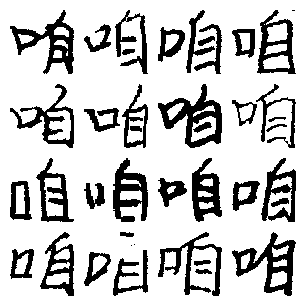 咱咱咱咱
咱咱咱咱
咱咱咱咱
咱咱咱咱